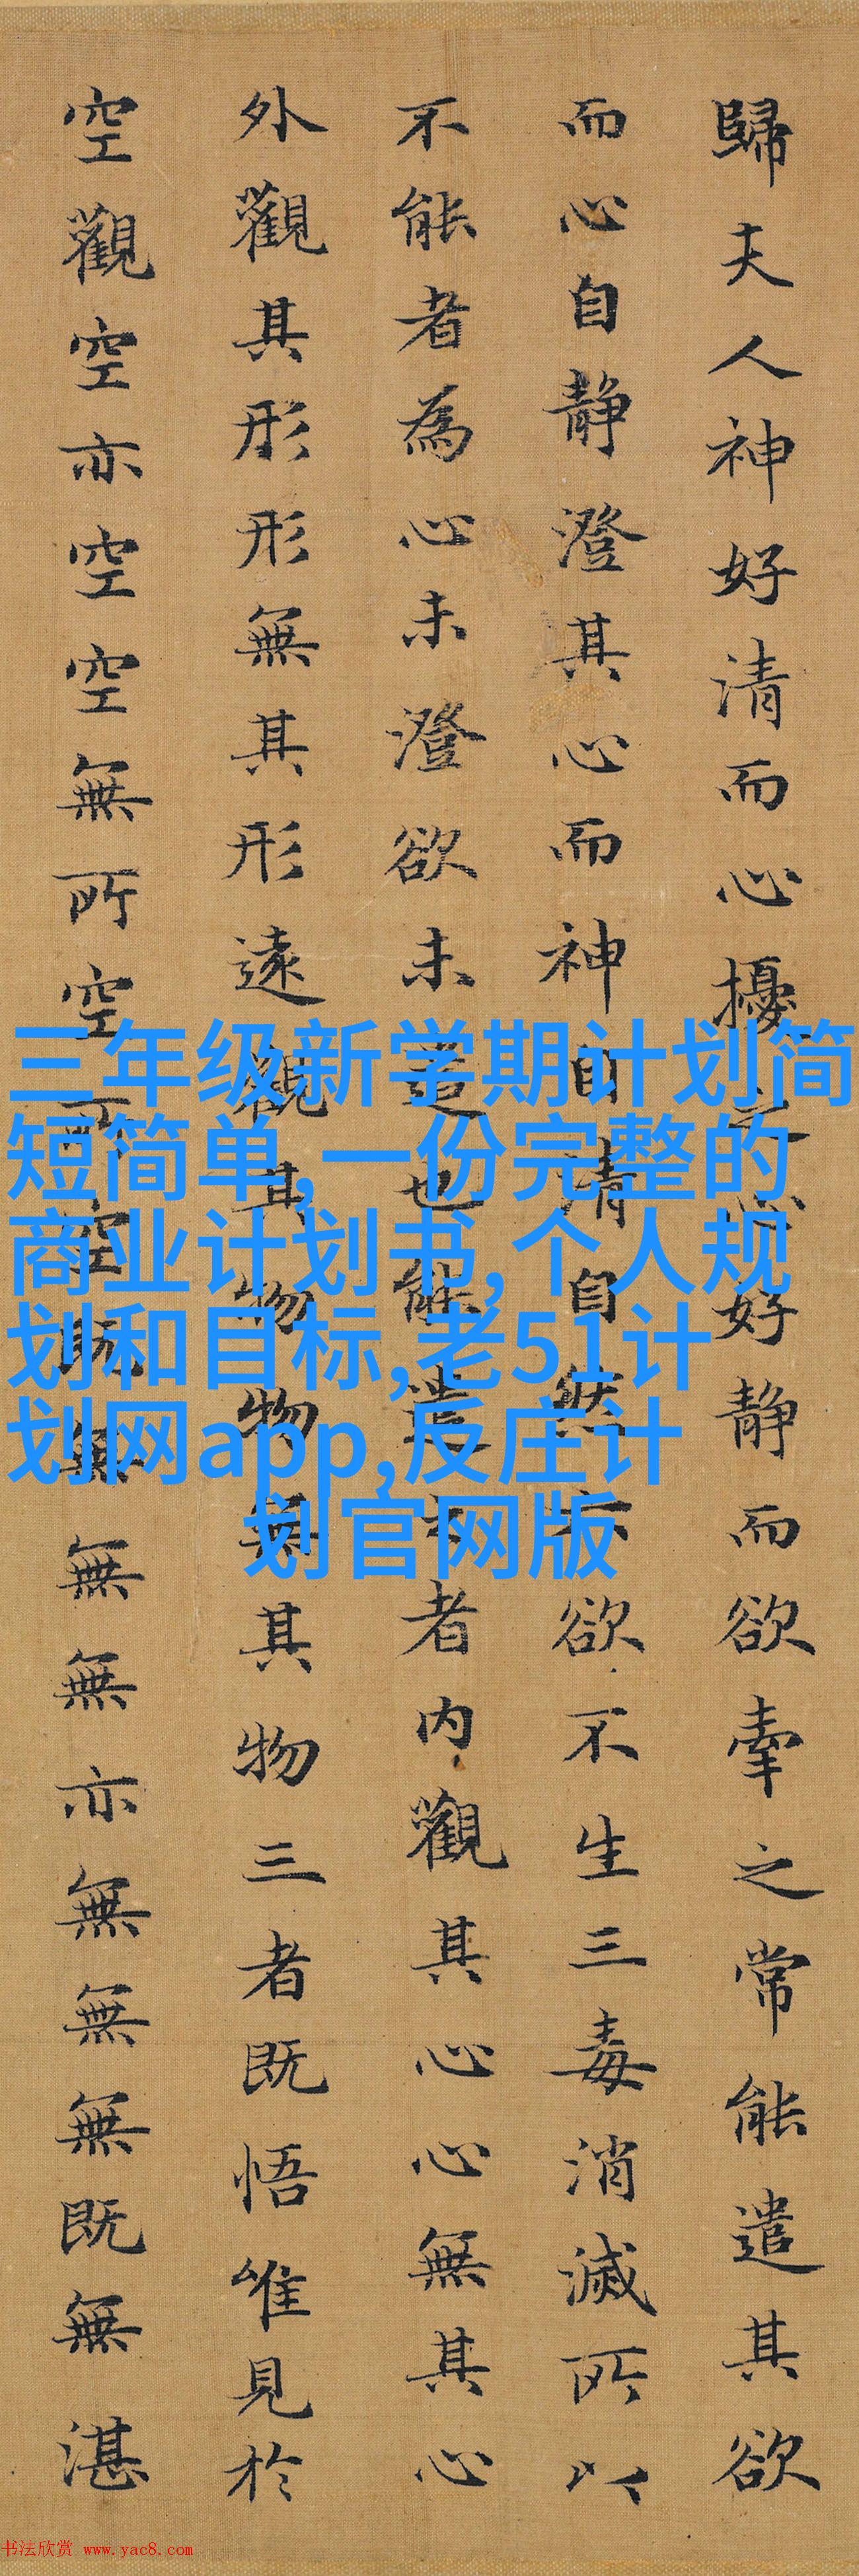 歸夫人神好清而心擾之心好静而欲牽之常能遣其欲
而心自静澄其心而神自清自然六欲不生三毒消滅所以
不能者為心未澄欲未遣也能遣之者内觀其心心無其心
外觀其形形無其形遠觀其物物無其物三者既悟唯見於
空觀空亦空空無所空所空既無無無亦無無無既無湛
三年级新学期计划简
短简单,一份完整的
商业计划书,个人规
划和目标,老51计
划网app,反庄计
划官网版
书法欣赏 www.yac8.com